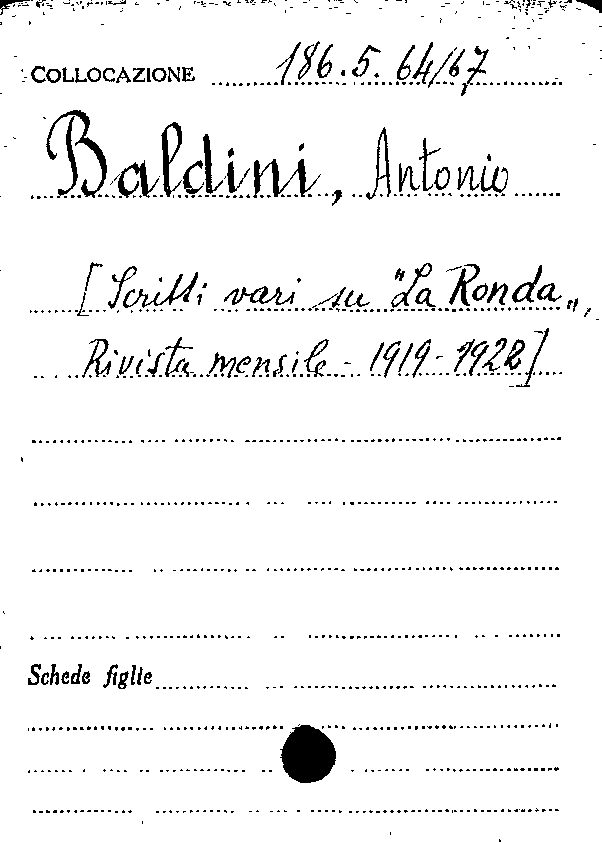 COLLOCAZIONE 186.5.64/67
Baldini, Antonio
[Scritti vari su "La Ronda",
Rivista mensile - 1919-1922]
Schede figlie